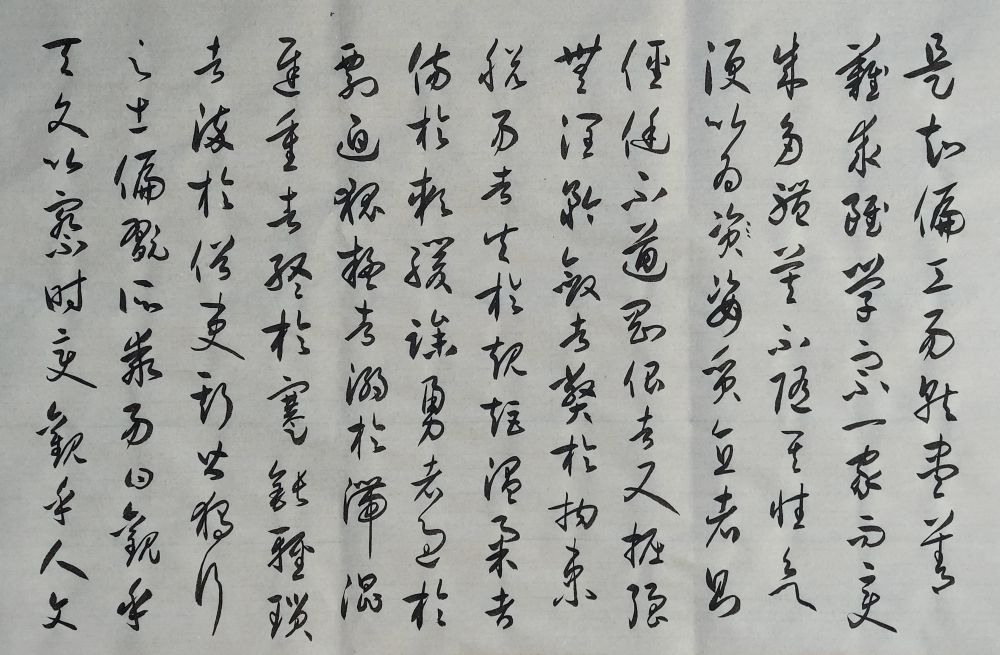 是知偏工易就盡善
難求雖學宗一家而變
成多體莫不隨其性欲
便以為資姿質直者則
俓侹不遒剛佷者又掘強
無潤矜斂者弊於拘束
脫易者失於規矩溫柔者
傷於軟緩躁勇者過於
剽迫狐疑者溺於滯澀
遲重者終於蹇鈍輕瑣
者染於俗吏斯皆獨行
之士偏翫所乖易曰觀乎
天文以察時變觀乎人文